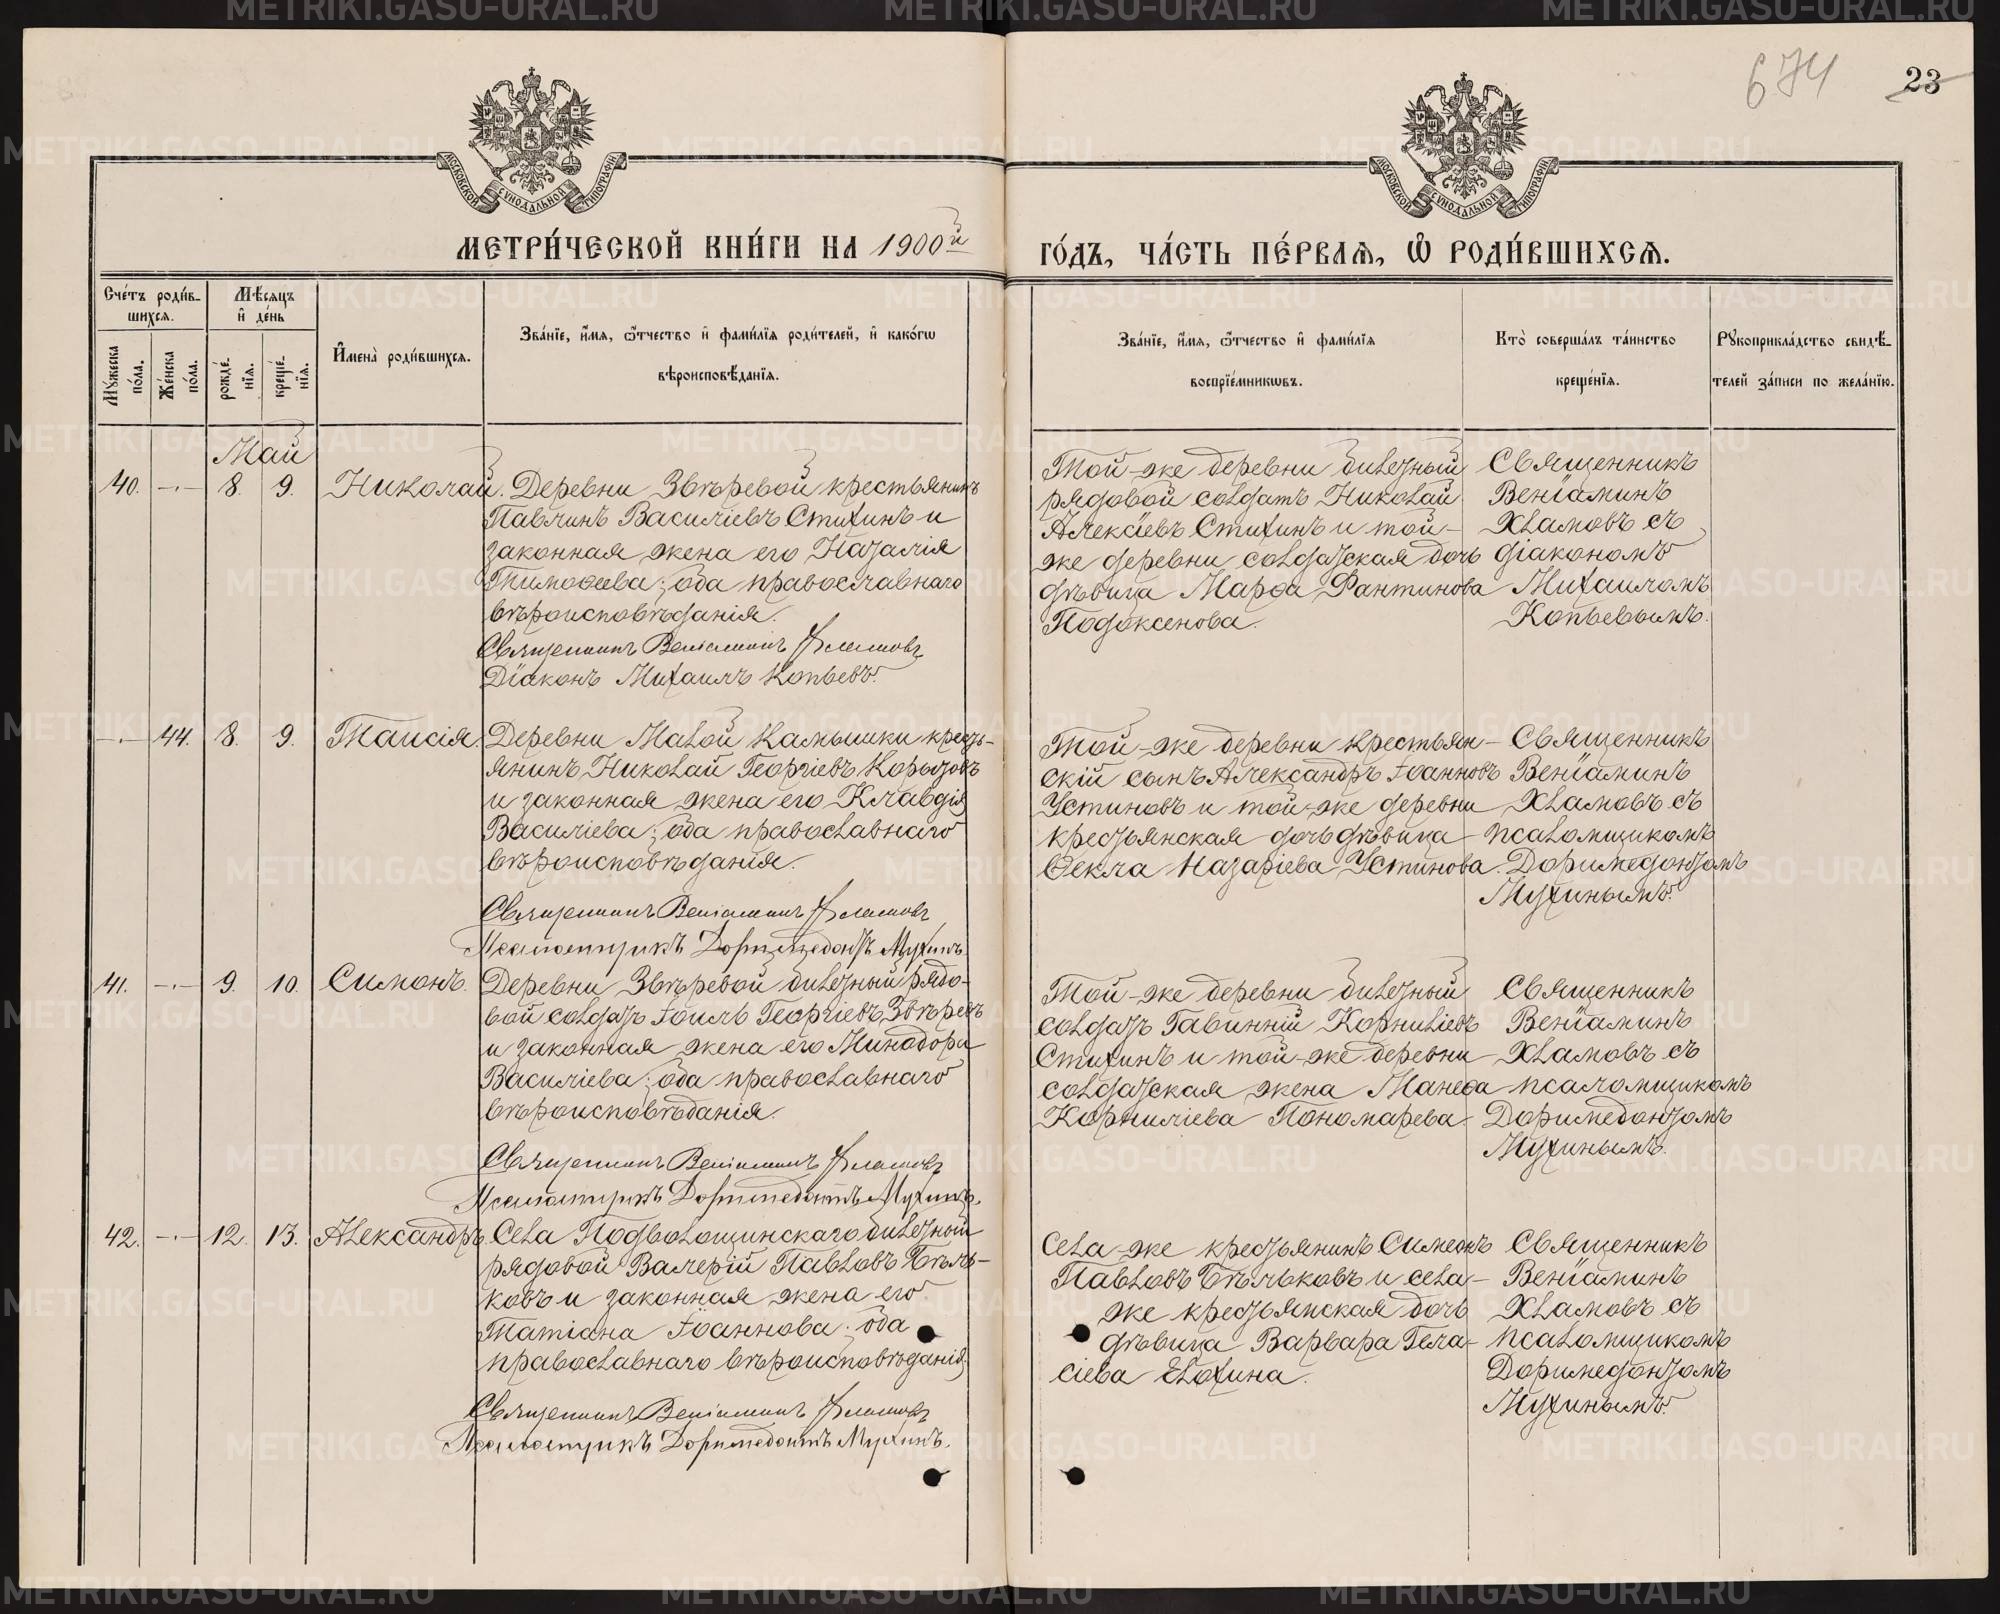 674
23
МОСКОВСКОЙ СѴНОДАЛЬНОЙ ТИПОГРАФІИ
МОСКОВСКОЙ СѴНОДАЛЬНОЙ ТИПОГРАФІИ
МЕТРИ́ЧЕСКОЙ КНИ́ГИ НА 1900й
ГО́ДЪ, ЧА́СТЬ ПЕ́РВАѦ, Ѡ҆ РОДИ́ВШИХСѦ.
Сче́тъ роди́в-
шихся.
Мѣ́сяцъ
и҆ де́нь
Му́жеска
по́ла.
Же́нска
по́ла.
рожде́-
нїя.
креще́-
нїя.
И҆мена̀ роди́вшихся.
Зва́нїе, и҆́мя, ѻ҆́тчество и҆ фами́лїя роди́телей, и҆ како́гѡ
вѣроисповѣ́данїя.
Зва́нїе, и҆́мя, ѻ҆́тчество и҆ фами́лїя
воспрїе́мникѡвъ.
Кто̀ соверша́лъ та́инство
креще́нїя.
Рꙋкоприкла́дство свидѣ́-
телей за́писи по жела́нїю.
Май
40. -·- 8. 9. Николай. Деревни Звѣревой крестьянинъ
Павлинъ Василіевъ Стихинъ и
законная жена его Наталія
Тимоѳеева; оба православнаго
вѣроисповѣданія.
Священникъ Веніаминъ Хламовъ
Діаконъ Михаилъ Копьевъ.
Той-же деревни билетный
рядовой солдатъ Николай
Алексіевъ Стихинъ и той-
же деревни солдатская дочь
дѣвица Марѳа Фантинова
Подоксенова.
Священникъ
Веніаминъ
Хламовъ съ
діакономъ
Михаиломъ
Копьевымъ.
-·- 44. 8. 9. Таисія. Деревни Малой Камышки кресть-
янинъ Николай Георгіевъ Корызовъ
и законная жена его Клавдія
Василіева; оба православнаго
вѣроисповѣданія.
Священникъ Веніаминъ Хламовъ
Псаломщикъ Доримедонтъ Мухинъ
Той-же деревни крестьян-
скій сынъ Александръ Іоанновъ
Устиновъ и той-же деревни
крестьянская дочь дѣвица
Ѳекла Назаріева Устинова.
Священникъ
Веніаминъ
Хламовъ съ
псаломщикомъ
Доримедонтомъ
Мухинымъ.
41. -·- 9. 10. Симонъ. Деревни Звѣревой билетный рядо-
вой солдатъ Іоиль Георгіевъ Звѣревъ
и законная жена его Минодора
Василіева; оба православнаго
вѣроисповѣданія.
Священникъ Веніаминъ Хламовъ
Псаломщикъ Доримедонтъ Мухинъ.
Той-же деревни билетный
солдатъ Гавинній Корниліевъ
Стихинъ и той-же деревни
солдатская жена Манеѳа
Корниліева Пономарева.
Священникъ
Веніаминъ
Хламовъ съ
псаломщикомъ
Доримедонтомъ
Мухинымъ.
42. -·- 12. 13. Александръ. Села Подволошинскаго билетный
рядовой Валерій Павловъ Бѣль-
ковъ и законная жена его
Татіана Іоаннова; оба
православнаго вѣроисповѣданія.
Священникъ Веніаминъ Хламовъ
Псаломщикъ Доримедонтъ Мухинъ.
Села-же крестьянинъ Симеонъ
Павловъ Бѣльковъ и села-
же крестьянская дочь
дѣвица Варвара Гела-
сіева Елохина.
Священникъ
Веніаминъ
Хламовъ съ
псаломщикомъ
Доримедонтомъ
Мухинымъ.
METRIKI.GASO-URAL.RU